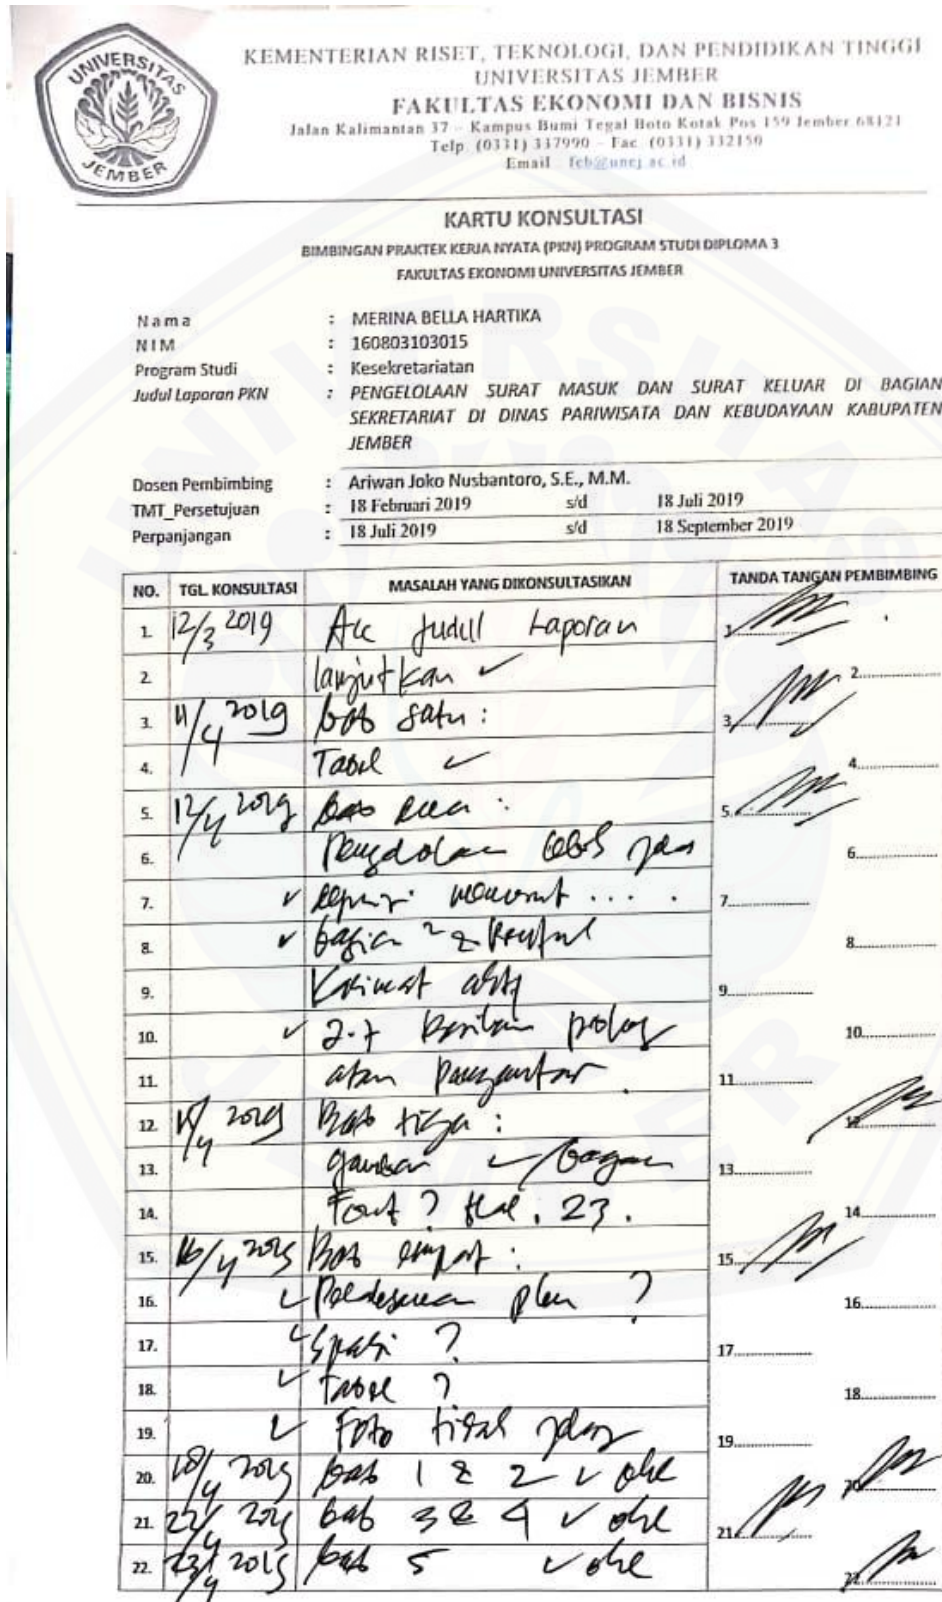 UNIVERSITAS
JEMBER
KEMENTERIAN RISET, TEKNOLOGI, DAN PENDIDIKAN TINGGI
UNIVERSITAS JEMBER
FAKULTAS EKONOMI DAN BISNIS
Jalan Kalimantan 37 – Kampus Bumi Tegal Boto Kotak Pos 159 Jember 68121
Telp. (0331) 337990 – Fac. (0331) 332150
Email : feb@unej.ac.id
KARTU KONSULTASI
BIMBINGAN PRAKTEK KERJA NYATA (PKN) PROGRAM STUDI DIPLOMA 3
FAKULTAS EKONOMI UNIVERSITAS JEMBER
Nama : MERINA BELLA HARTIKA
NIM : 160803103015
Program Studi : Kesekretariatan
Judul Laporan PKN : PENGELOLAAN SURAT MASUK DAN SURAT KELUAR DI BAGIAN
SEKRETARIAT DI DINAS PARIWISATA DAN KEBUDAYAAN KABUPATEN
JEMBER
Dosen Pembimbing : Ariwan Joko Nusbantoro, S.E., M.M.
TMT_Persetujuan : 18 Februari 2019 s/d 18 Juli 2019
Perpanjangan : 18 Juli 2019 s/d 18 September 2019
NO. TGL. KONSULTASI MASALAH YANG DIKONSULTASIKAN TANDA TANGAN PEMBIMBING
1. 12/3 2019 Acc Judul Laporan 1
2. lanjutkan ✓ 2
3. 11/4 2019 bab satu : 3
4. Tabel ✓ 4
5. 12/4 2019 bab dua : 5
6. Pengelolaan 6
7. ✓ menurut .... 7
8. ✓ bagian 2 8
9. Kalimat 9
10. ✓ 2.7 10
11. atau pengantar 11
12. 2019 Bab tiga : 12
13. gambar ✓ / bagan 13
14. Font ? Hal. 23. 14
15. 16/4 2019 Bab empat : 15
16. ✓ ? 16
17. ✓ Spasi ? 17
18. ✓ Tabel ? 18
19. ✓ Foto tidak jelas 19
20. 18/4 2019 bab 1 & 2 ✓ oke 20
21. 22/4 2019 bab 3 & 4 ✓ oke 21
22. 23/4 2019 bab 5 ✓ oke 22